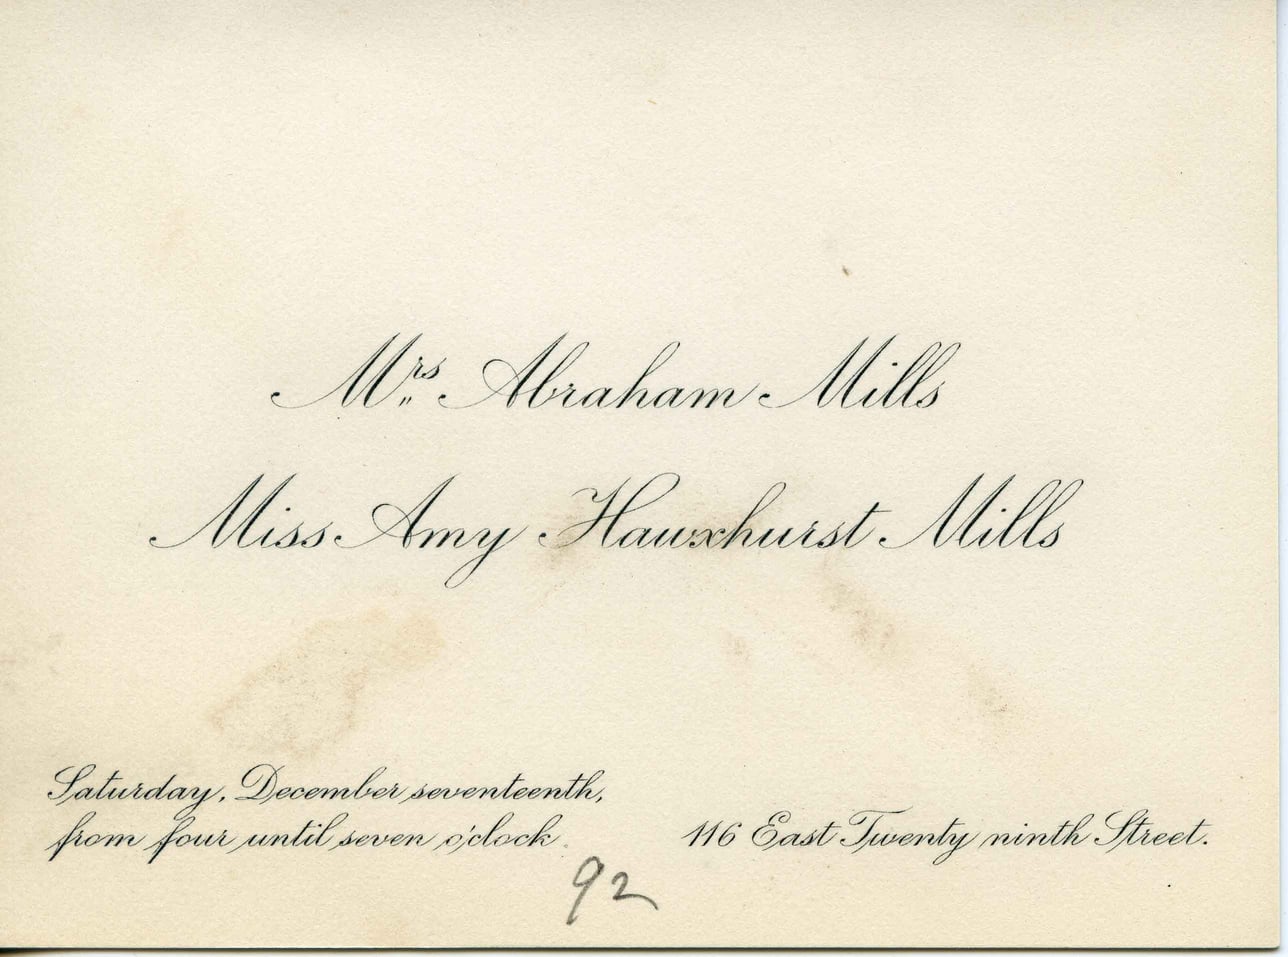 Mrs Abraham Mills
Miss Amy Hauxhurst Mills
Saturday, December seventeenth,
from four until seven o'clock.
116 East Twenty ninth Street.
92